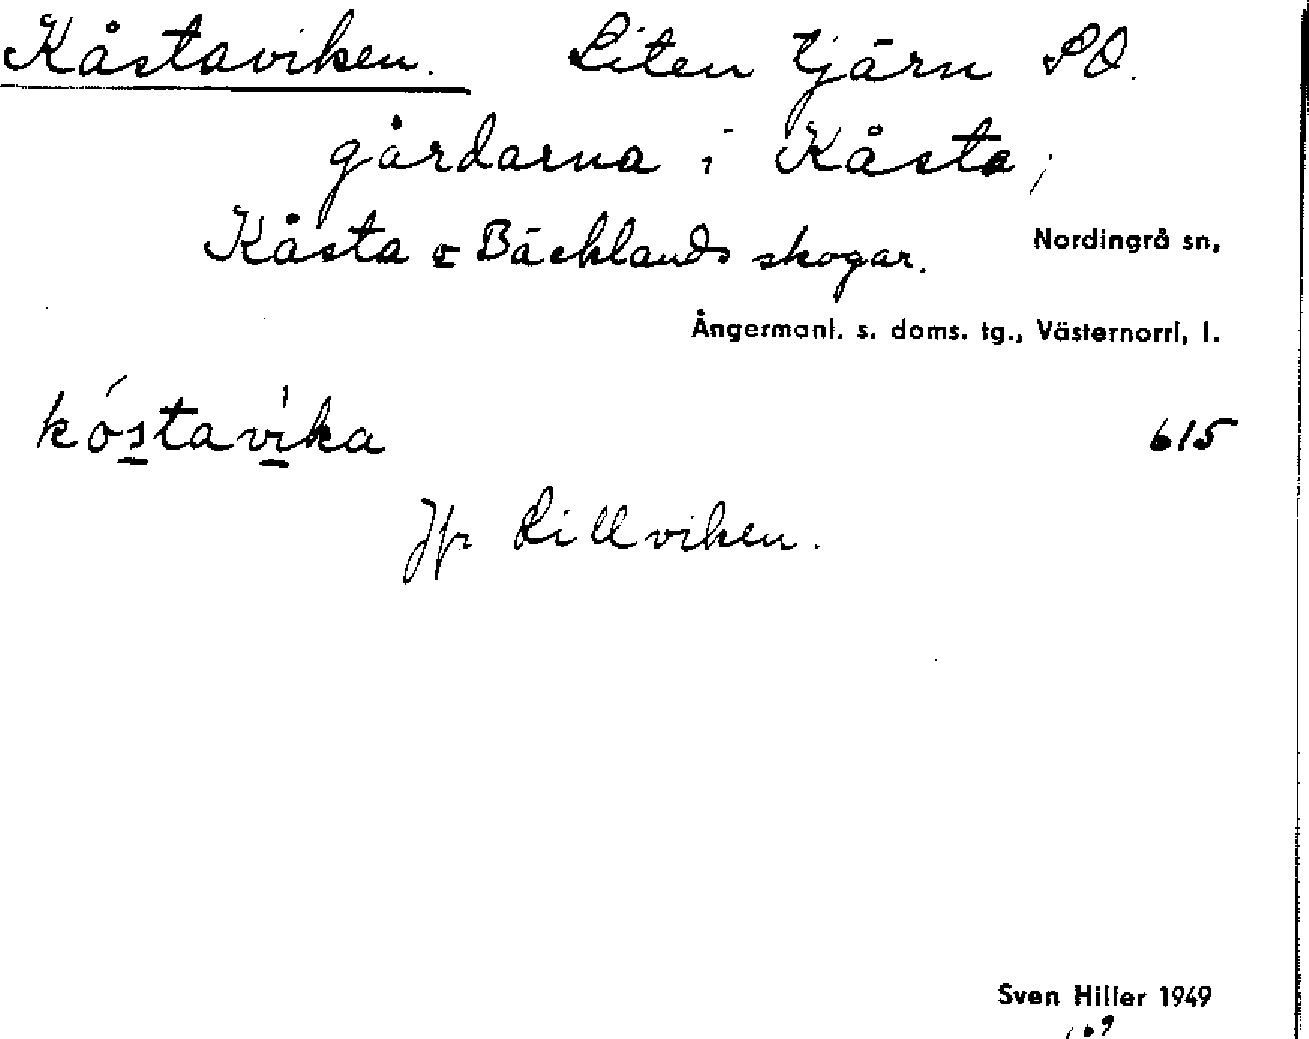 Kåstaviken. Liten tjärn SO.
gårdarna i Kåsta;
Kåsta o Bäcklands skogar. Nordingrå sn,
Ångermanl. s. doms. tg., Västernorrl, l.
kóstavika 615
Jfr Lillviken.
Sven Hiller 1949